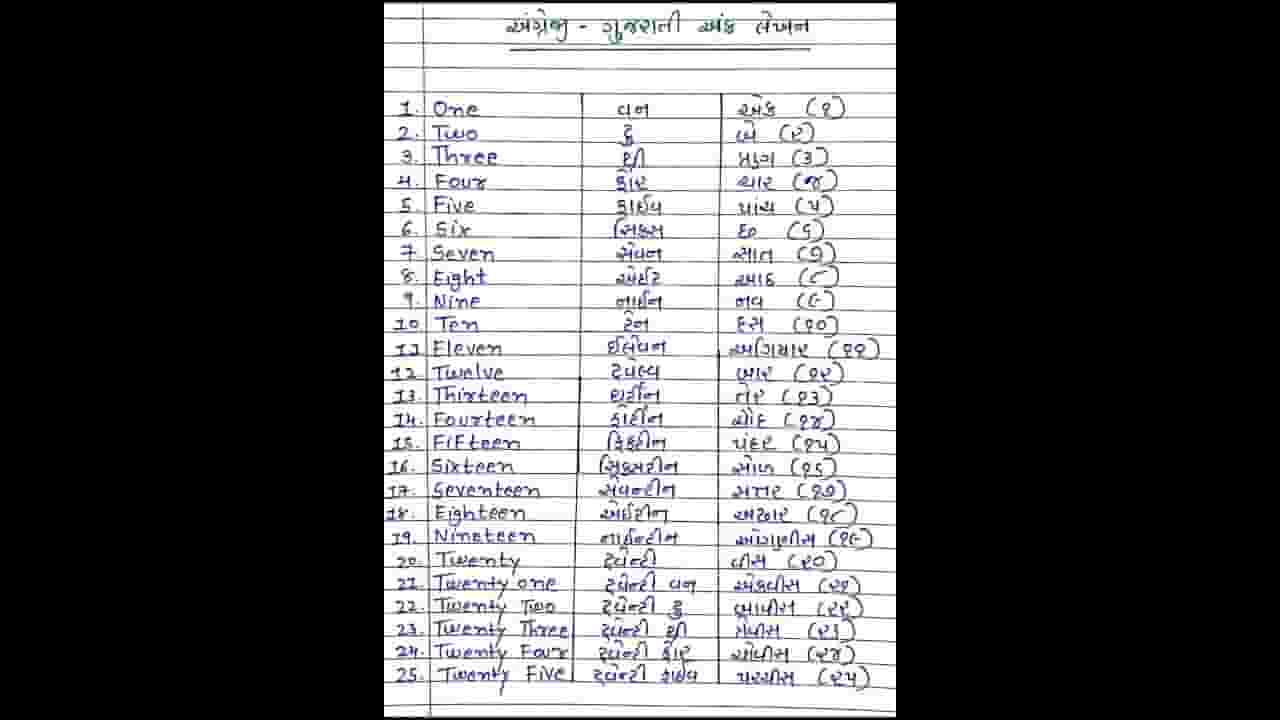 અંગ્રેજી - ગુજરાતી અંક લેખન
1. One વન એક (૧)
2. Two ટુ બે (૨)
3. Three થ્રી ત્રણ (૩)
4. Four ફોર ચાર (૪)
5. Five ફાઈવ પાંચ (૫)
6. Six સિક્સ છ (૬)
7. Seven સેવન સાત (૭)
8. Eight એઈટ આઠ (૮)
9. Nine નાઈન નવ (૯)
10. Ten ટેન દસ (૧૦)
11. Eleven ઈલેવન અગિયાર (૧૧)
12. Twelve ટવેલ્વ બાર (૧૨)
13. Thirteen થર્ટીન તેર (૧૩)
14. Fourteen ફોર્ટીન ચોદ (૧૪)
15. FiFteen ફિફ્ટીન પંદર (૧૫)
16. Sixteen સિક્સટીન સોળ (૧૬)
17. Seventeen સેવન્ટીન સત્તર (૧૭)
18. Eighteen એઈટીન અઢાર (૧૮)
19. Nineteen નાઈન્ટીન ઓગણીસ (૧૯)
20. Twenty ટ્વેન્ટી વીસ (૨૦)
21. Twenty one ટ્વેન્ટી વન એકવીસ (૨૧)
22. Twenty Two ટ્વેન્ટી ટુ બાવીસ (૨૨)
23. Twenty Three ટ્વેન્ટી થ્રી ત્રેવીસ (૨૩)
24. Twenty Four ટ્વેન્ટી ફોર ચોવીસ (૨૪)
25. Twenty Five ટ્વેન્ટી ફાઈવ પચ્ચીસ (૨૫)